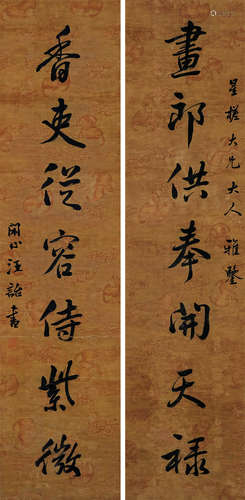 星槎大兄大人雅鑒
畫郎供奉開天祿
香吏從容侍紫微
閑止汪詒書